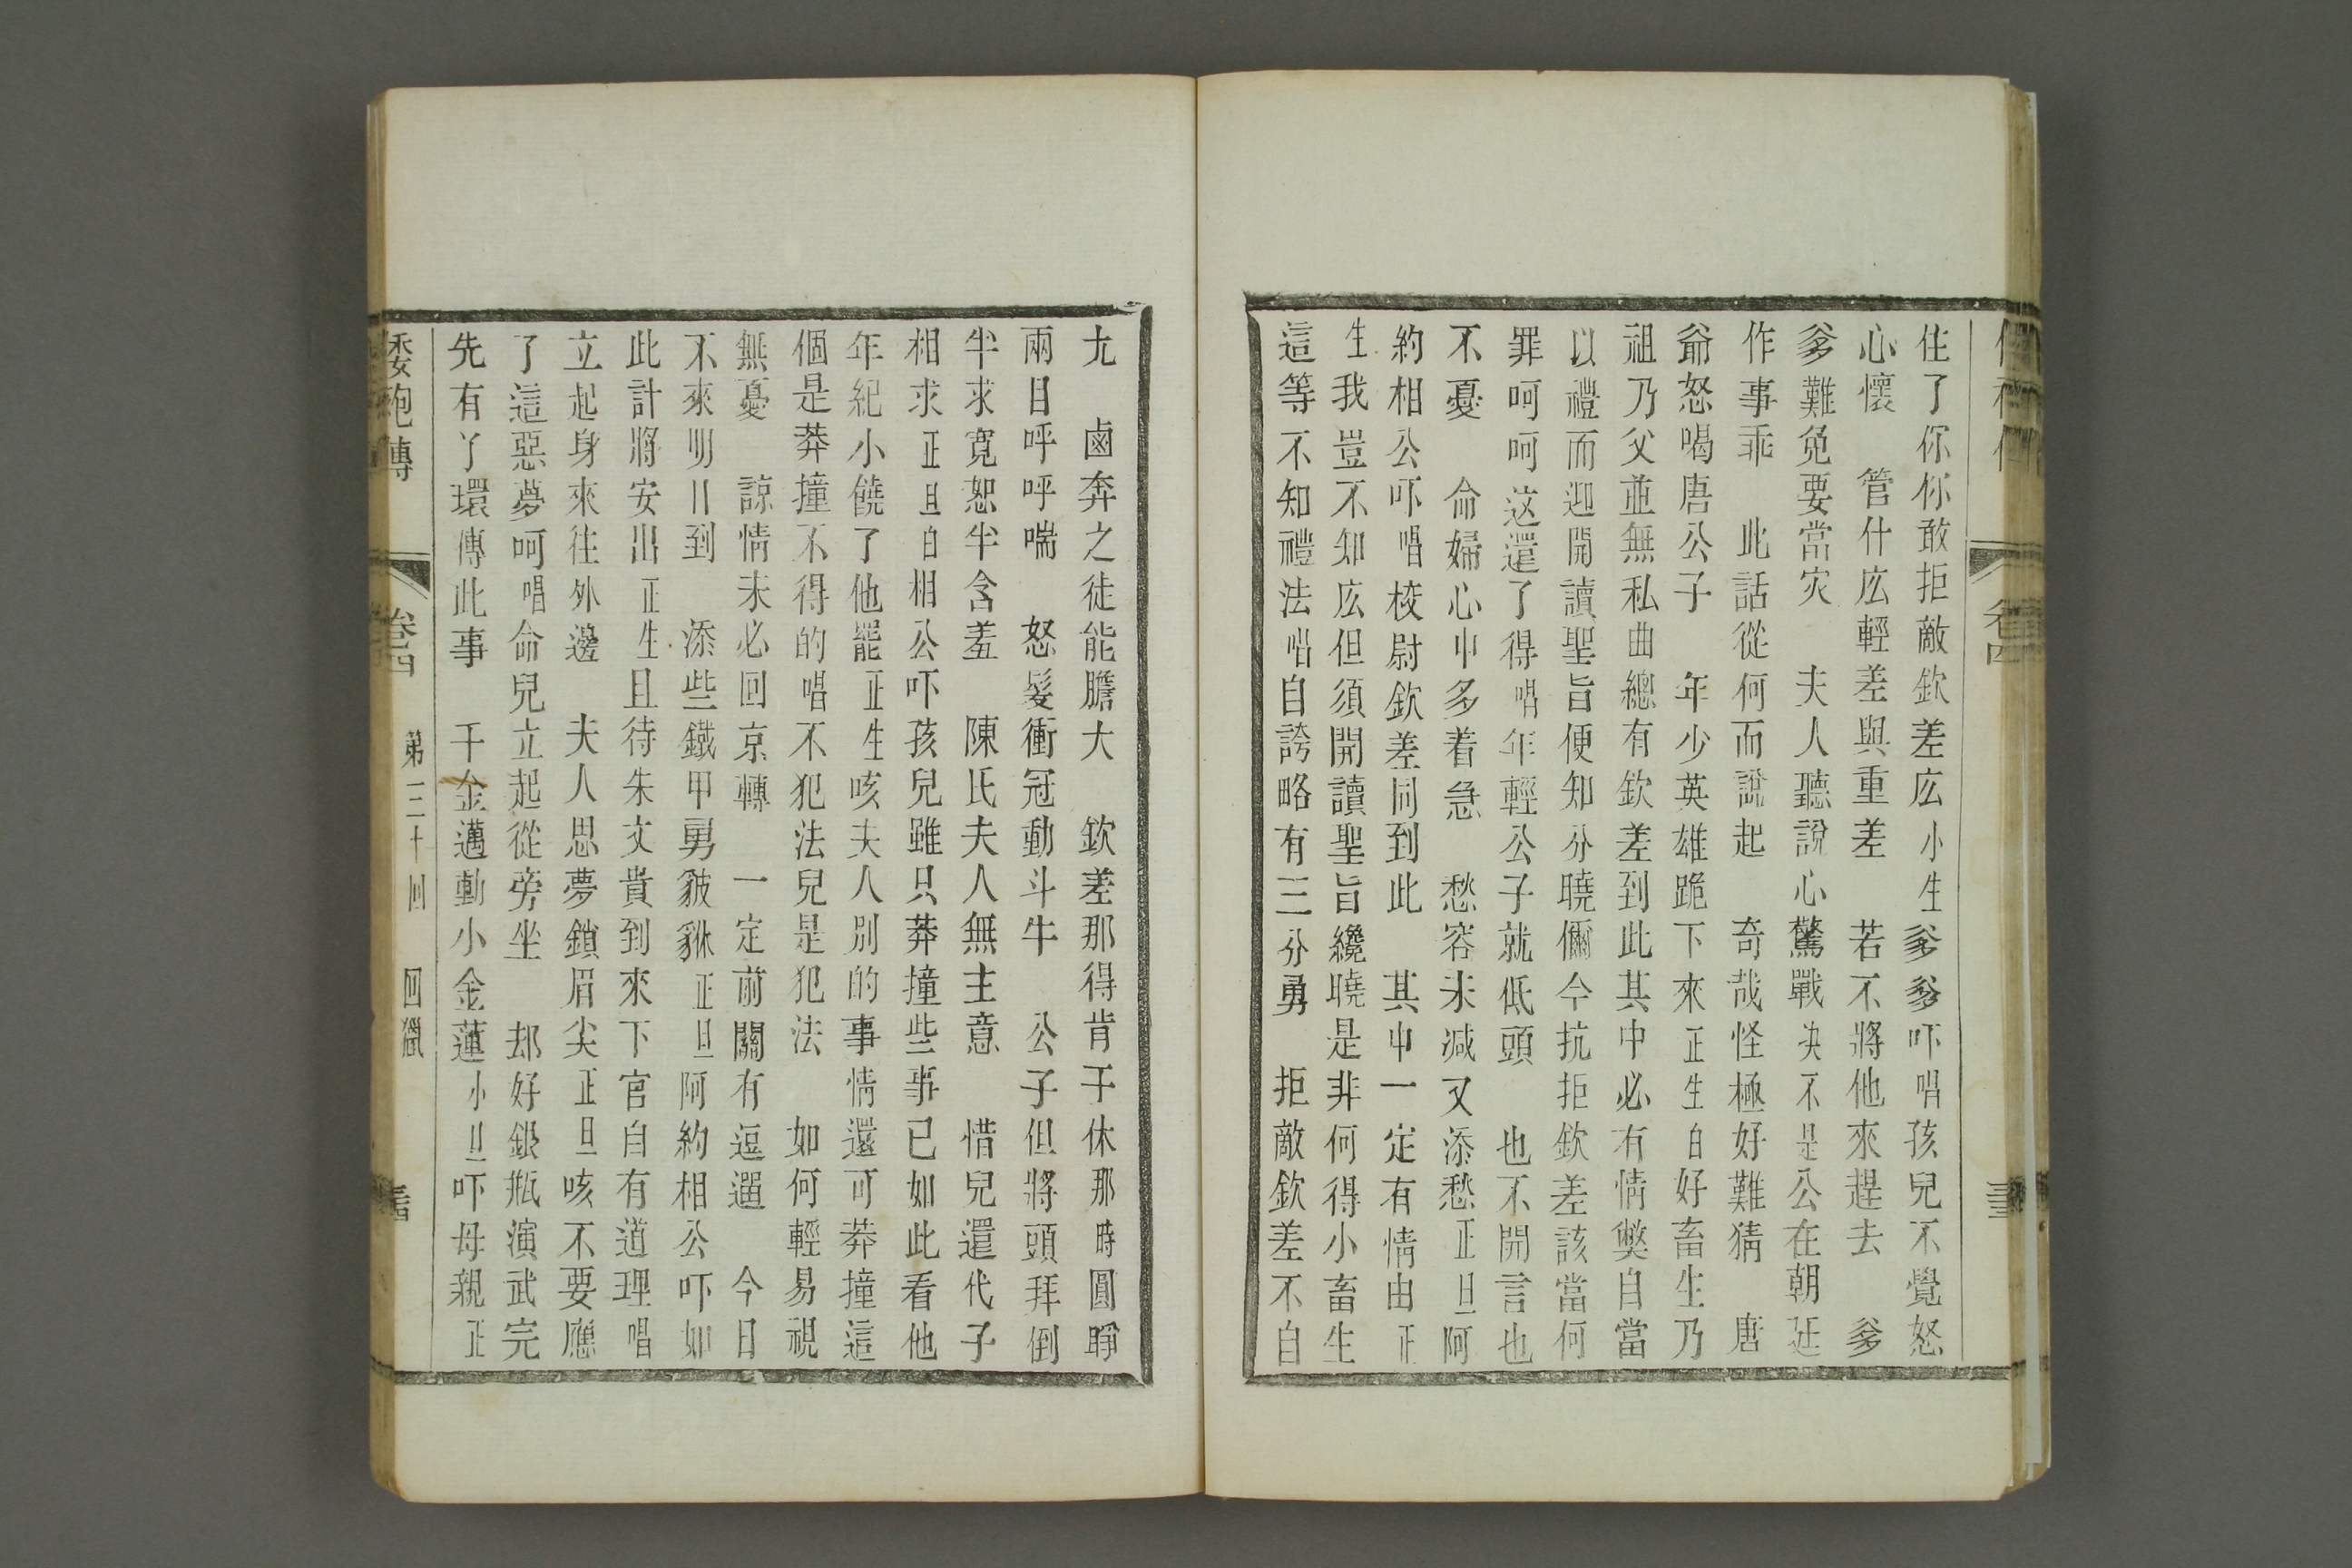 住了你你敢拒敵欽差広小生爹爹吓唱孩兒不覺怒
心懷　管什広輕差與重差　若不將他來趕去　爹
爹難免要當灾　夫人聽說心驚戰决不是公在朝廷
作事乖　此話從何而說起　奇哉怪極好難猜　唐
爺怒喝唐公子　年少英雄跪下來正生白好畜生乃
祖乃父並無私曲總有欽差到此其中必有情獘自當
以禮而迎開讀聖旨便知分曉儞今抗拒欽差該當何
罪呵呵这還了得唱年輕公子就低頭　也不開言也
不憂　命婦心中多着急　愁容未減又添愁正旦阿
約相公吓唱校尉欽差同到此　其中一定有情由正
生我豈不知広但須開讀聖旨纔曉是非何得小畜生
這等不知禮法唱自誇略有三分勇　拒敵欽差不自
九　鹵奔之徒能膽大　欽差那得肯干休那時圓睜
兩目呼呼喘　怒髮衝冠動斗牛　公子但將頭拜倒
半求寬恕半含羞　陳氏夫人無主意　惜兒還代子
相求正旦白相公吓孩兒雖只莽撞些事已如此看他
年紀小饒了他罷正生咳夫人別的事情還可莽撞這
個是莽撞不得的唱不犯法兒是犯法　如何輕易視
無憂　諒情未必回京轉　一定前關有逗遛　今日
不來明日到　添些鐵甲勇貔貅正旦阿約相公吓如
此計將安出正生且待朱文貴到來下官自有道理唱
立起身來往外邊　夫人思夢鎖眉尖正旦咳不要應
了這惡夢呵唱命兒立起從旁坐　却好銀瓶演武完
先有丫環傳此事　千金邁動小金蓮小旦吓母親正
倭袍傳　卷四　第三十回　回獵